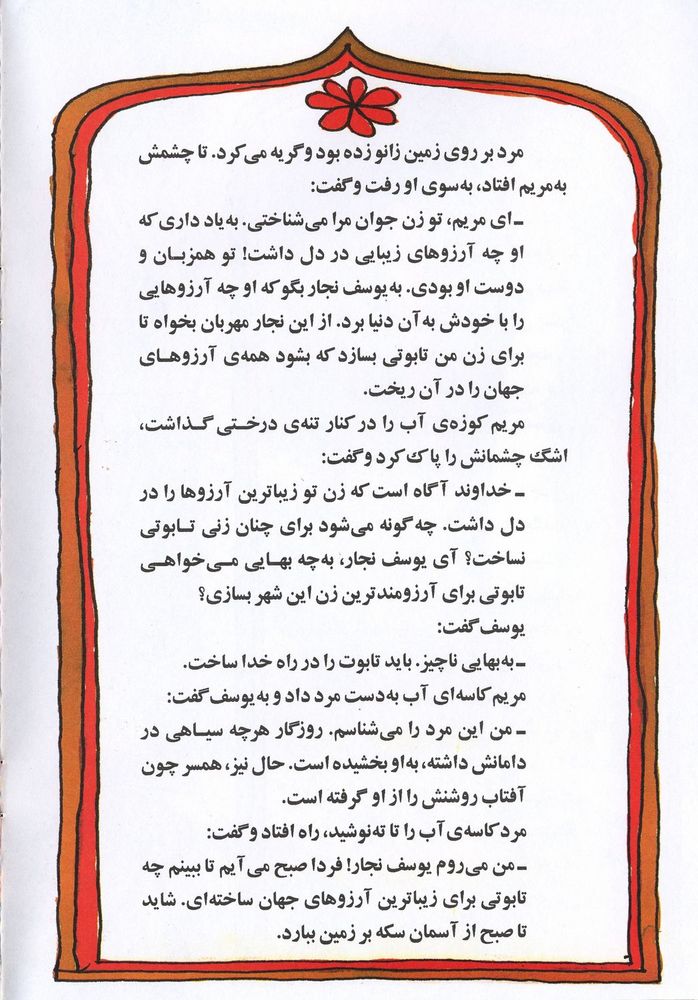 مرد بر روی زمین زانو زده بود و گریه می‌کرد. تا چشمش
به‌مریم افتاد، به‌سوی او رفت و گفت:
ـ ای مریم، تو زن جوان مرا می‌شناختی. به‌یاد داری که
او چه آرزوهای زیبایی در دل داشت! تو همزبان و
دوست او بودی. به‌یوسف نجار بگو که او چه آرزوهایی
را با خودش به‌آن دنیا برد. از این نجار مهربان بخواه تا
برای زن من تابوتی بسازد که بشود همه‌ی آرزوهای
جهان را در آن ریخت.
مریم کوزه‌ی آب را در کنار تنه‌ی درختی گذاشت،
اشگ چشمانش را پاک کرد و گفت:
ـ خداوند آگاه است که زن تو زیباترین آرزوها را در
دل داشت. چه‌گونه می‌شود برای چنان زنی تابوتی
نساخت؟ آی یوسف نجار، به‌چه بهایی می‌خواهی
تابوتی برای آرزومندترین زن این شهر بسازی؟
یوسف گفت:
ـ به‌بهایی ناچیز. باید تابوت را در راه خدا ساخت.
مریم کاسه‌ای آب به‌دست مرد داد و به‌یوسف گفت:
ـ من این مرد را می‌شناسم. روزگار هرچه سیاهی در
دامانش داشته، به‌او بخشیده است. حال نیز، همسر چون
آفتاب روشنش را از او گرفته است.
مرد کاسه‌ی آب را تا ته‌نوشید، راه افتاد و گفت:
ـ من می‌روم یوسف نجار! فردا صبح می‌آیم تا ببینم چه
تابوتی برای زیباترین آرزوهای جهان ساخته‌ای. شاید
تا صبح از آسمان سکه بر زمین ببارد.